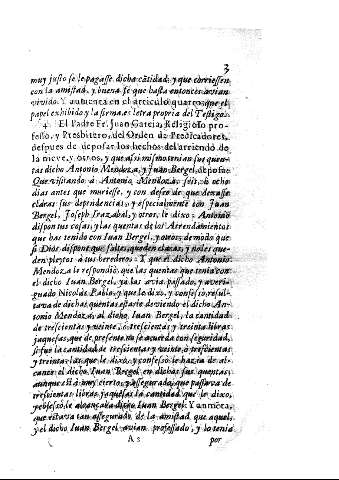 3
muy justo se le pagasse dicha cãtidad, y que corriessen
con la amistad, y buena fe que hasta entonces avian
vivido. Y aumenta en el articulo quarto, que el
papel exhibido, y la firma es letra propria del Testigo.
4. El Padre Fr. Juan Garcia, Religioso pro-
fesso, y Presbitero, del Orden de Predicadores,
despues de deposar los hechos del arriendo de
la nieve, y otros, y que assi mismo tenian sus quen-
tas dicho Antonio Mendoza, y Juan Bergel, depuso:
Que visitando à Antonio Mendoza, seis, ù ocho
dias antes que muriesse, y con deseo de que dexasse
claras sus dependencias, y especialmente con Juan
Bergel, Joseph Irazabal, y otros, le dixo: Antonio
dispon tus cosas, y las quentas de los Arrendamientos
que has tenido con Iuan Bergel, y otros, de modo que
si Dios dispone que faltes, queden claras, y no les que-
den pleytos à tus herederos: Y que el dicho Antonio
Mendoza le respondiò, que las quentas que tenia con
el dicho Iuan Bergel, ya las avia passado, y averi-
guado Nicolàs Pablo, y que le dixo, y confesò, resul-
tava de dichas quentas estarle deviendo el dicho An-
tonio Mendoza al dicho Iuan Bergel, la cantidad
de trescientas y veinte, ò trescientas y treinta libras
jaquesas, que de presente no se acuerda con seguridad,
si fue la cantidad de trescientas y veinte ò trescientas,
y treinta las que le dixo, y confesò, le hazia de al-
cance el dicho Iuan Bergel en dichas sus quentas,
aunque està muy cierto, y assegurado, que passava de
trescientas libras jaquesas la cantidad que le dixo,
y confesò le alcançava dicho Iuan Bergel. Y añade,
que estava tan assegurado, de la amistad que aquel,
y el dicho Iuan Bergel avian professado, y lo tenia
A 2
por